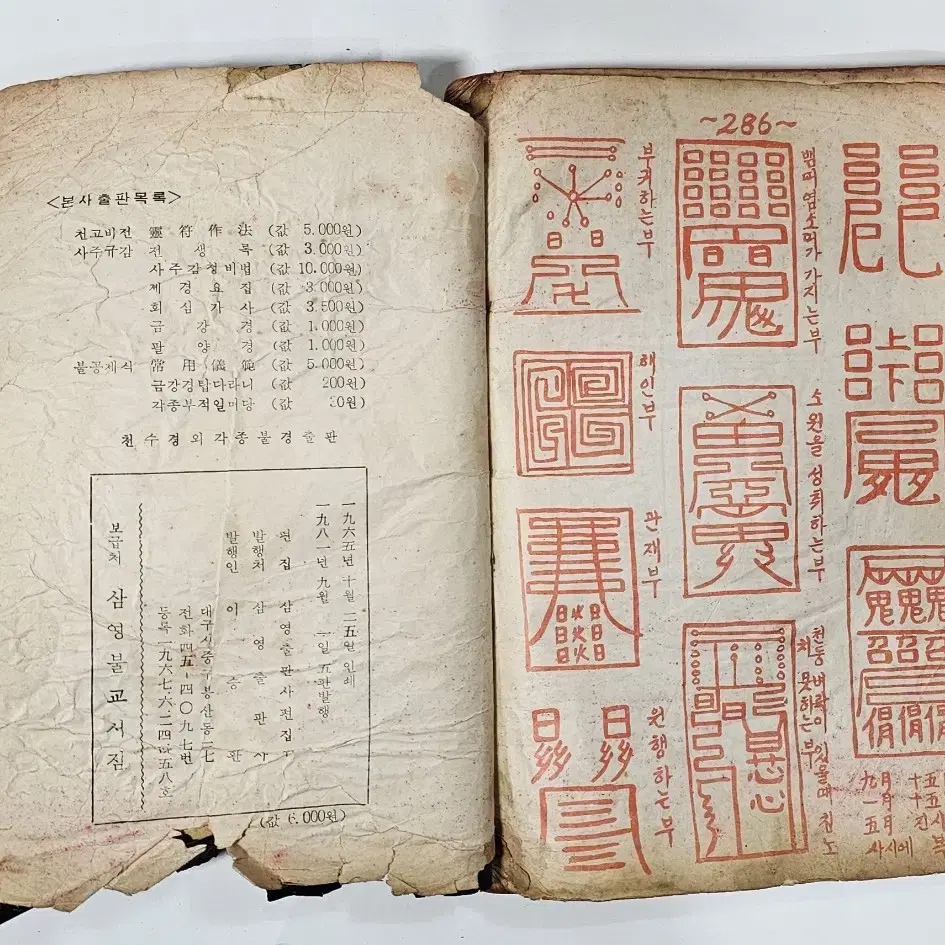 <본사출판목록>
천고비전 靈符作法 (값 5.000원)
사주규감 전생록 (값 3.000원)
사주감정비법 (값 10.000원)
제경요집 (값 3.000원)
회심가사 (값 3.500원)
금강경 (값 1.000원)
팔양경 (값 1.000원)
불공제식 常用儀範 (값 5.000원)
금강경탑다라니 (값 200원)
각종부적일미당 (값 30원)
천수경외각종불경출판
一九六五년 十월 二五일 인쇄
一九八一년 九월 一일 五판발행
편집 삼영출판사편집
발행처 삼영출판사
발행인 이승판
대구시중구봉산동二七
전화 四五-四〇九七번
등록一九六七.六.二四 五八호
보급처 삼영불교서점
(값 6.000원)
~286~
부귀하는부
해인부
관재부
원행하는부
뱀띠염소띠가 가지는부
소원을 성취하는부
천둥벼락이 있을때 친노
처 못하는부